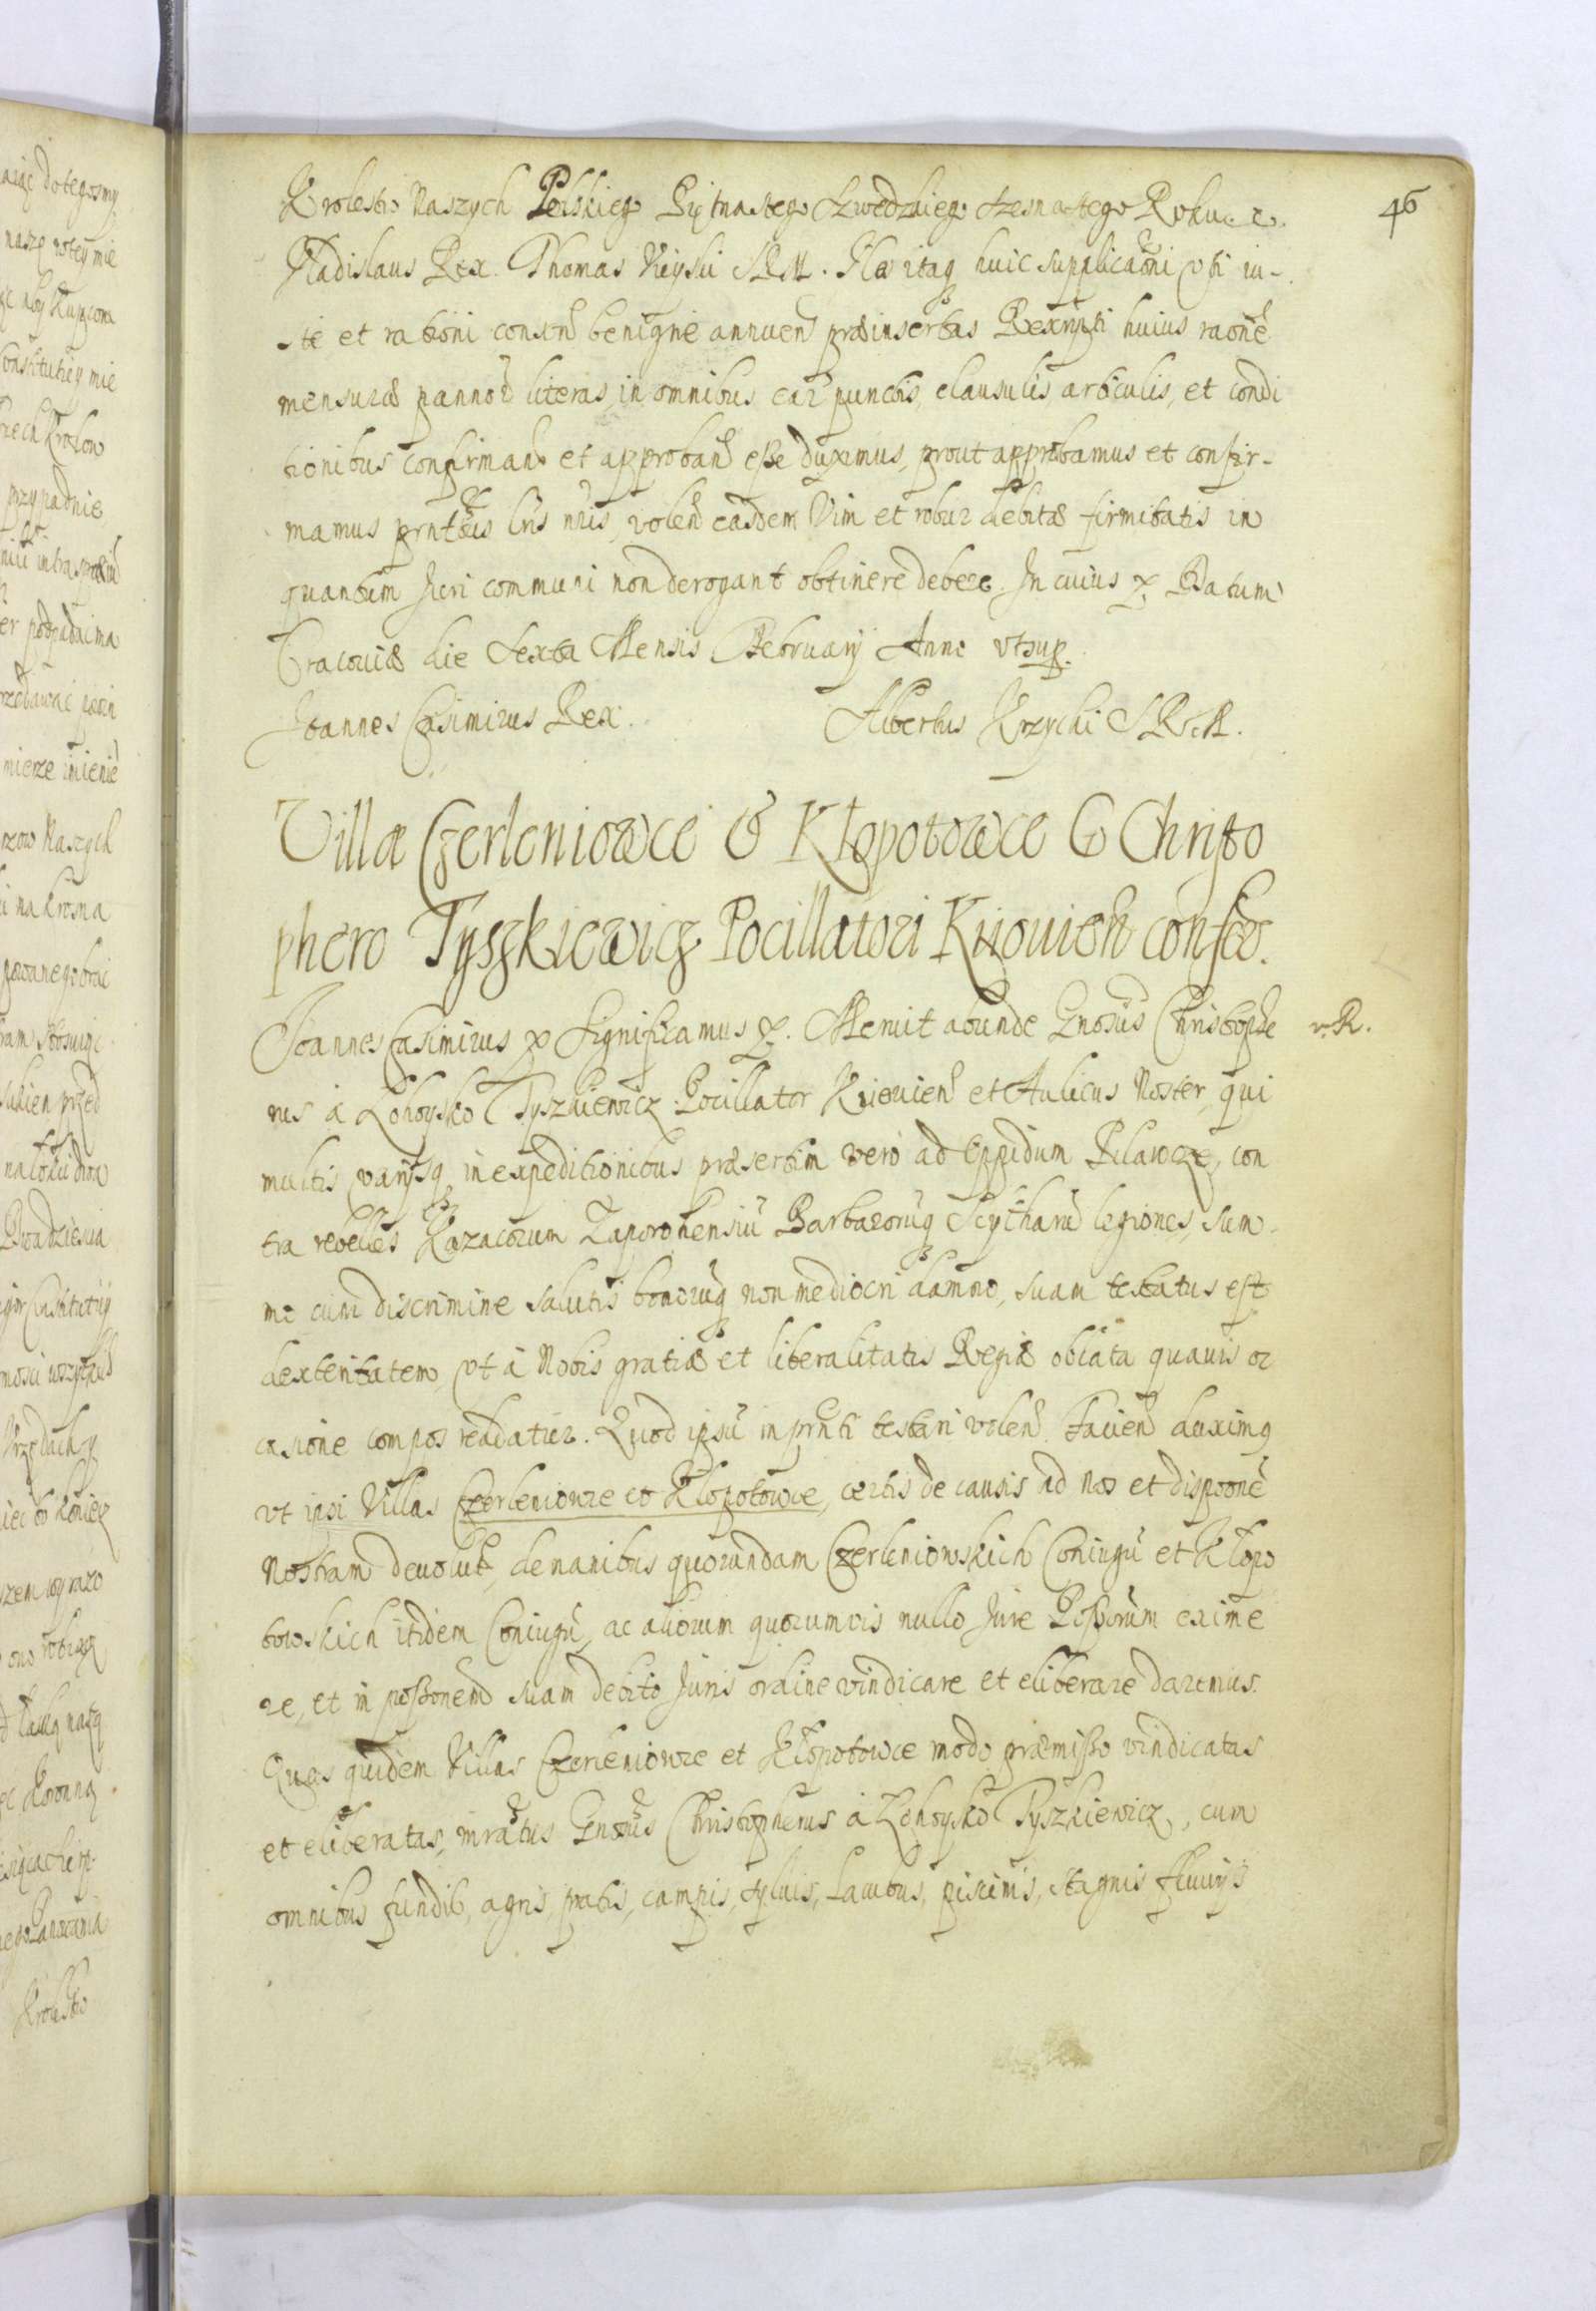 46
Krolestw Naszych Polskiego Piętnastego Szwedzkiego szesnastego Roku. &.
Vladislaus Rex. Thomas Uieyski SRM. Nos itaq huic supplicaoni vti iu-
stæ et rationi consen benigne annuen præinsertas Rescripti huius raone
mensuræ pannor literas, in omnibus ear punctis, clausulis articulis, et condi
tionibus confirman et approban esse duximus, prout approbamus et confir-
mamus pntibus lris nris, volen easdem Vim et robur debitæ firmitatis in
quantum Juri communi non derogant obtinere debere. In cuius &. Datum
Cracoviæ die sexta Mensis February Anno vtsup.
Joannes Casimirus Rex. Albertus Krzycki SRM.
Villæ Czerleniowce & Kłopotowce G Christo
phero Tyszkiewicz Pocillatori Kijouien confer.
Joannes Casimirus & Significamus &. Meruit abunde Gnosus Christophe r. R.
rus à Lohoysko Tyszkiewicz Pocillator Kijouien et Aulicus Noster, qui
multis varijsq in expeditionibus præsertim vero ad Oppidum Pilawcze, con
tra rebelles Kozacorum Zaporohensiu Barbarorug Scytharu legiones, sum-
mo cum discrimine salutis bonorug non mediocri damno, suam testatus est
dexteritatem, vt à Nobis gratiæ et liberalitatis Regiæ oblata quauis oc
casione compos reddatur. Quod ipsu in pnti testari volen. Facien duximq
vt ipsi Villas Czerleniowce et Kłopotowce, certis de causis ad Nos et disposone
Nostram deuolut, de manibus quorundam Czerleniowskich Coniugu et Kłopo
towskich itidem Coniugu, ac aliorum quorumvis nullo Jure Possorum exime
re, et in possonem suam debito Juris ordine vindicare et eliberare daremus.
Quas quidem Villas Czerleniowce et Kłopotowce modo præmisso vindicatas
et eliberatas, mratus Gnosus Christopherus à Lohoysko Tyszkiewicz, cum
omnibus fundis, agris, pratis, campis, syluis, Lacubus, piscinis, stagnis fluuijs